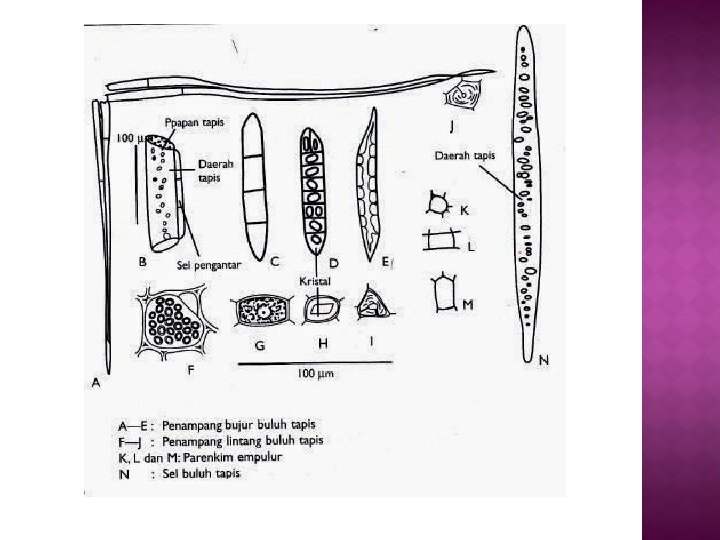 Ppapan tapis
100 µm
Daerah
tapis
J
Daerah tapis
K
L
B
Sel pengantar
C
D
E
Kristal
M
F
G
H
I
N
100 µm
A
A—E : Penampang bujur buluh tapis
F—J : Penampang lintang buluh tapis
K, L dan M: Parenkim empulur
N : Sel buluh tapis